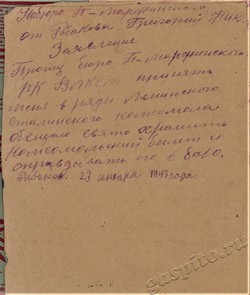 от Ткакова Григорий Ник.
Заявление
Прошу бюро П-Марфинского
РК ВЛКСМ принять
меня в ряды Ленинского
сталинского комсомола
обещаю свято хранить
комсомольский билет и
оправдывать его в бою.
23 января 1943 года.
gaspiro.ru